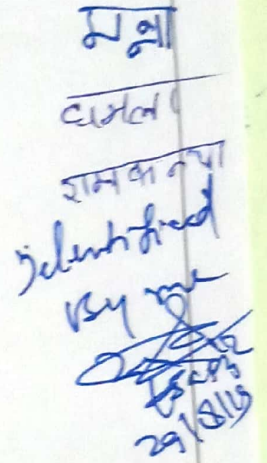 मन्ना
धमला
रामकन्या
Identified
By me
29/8/19